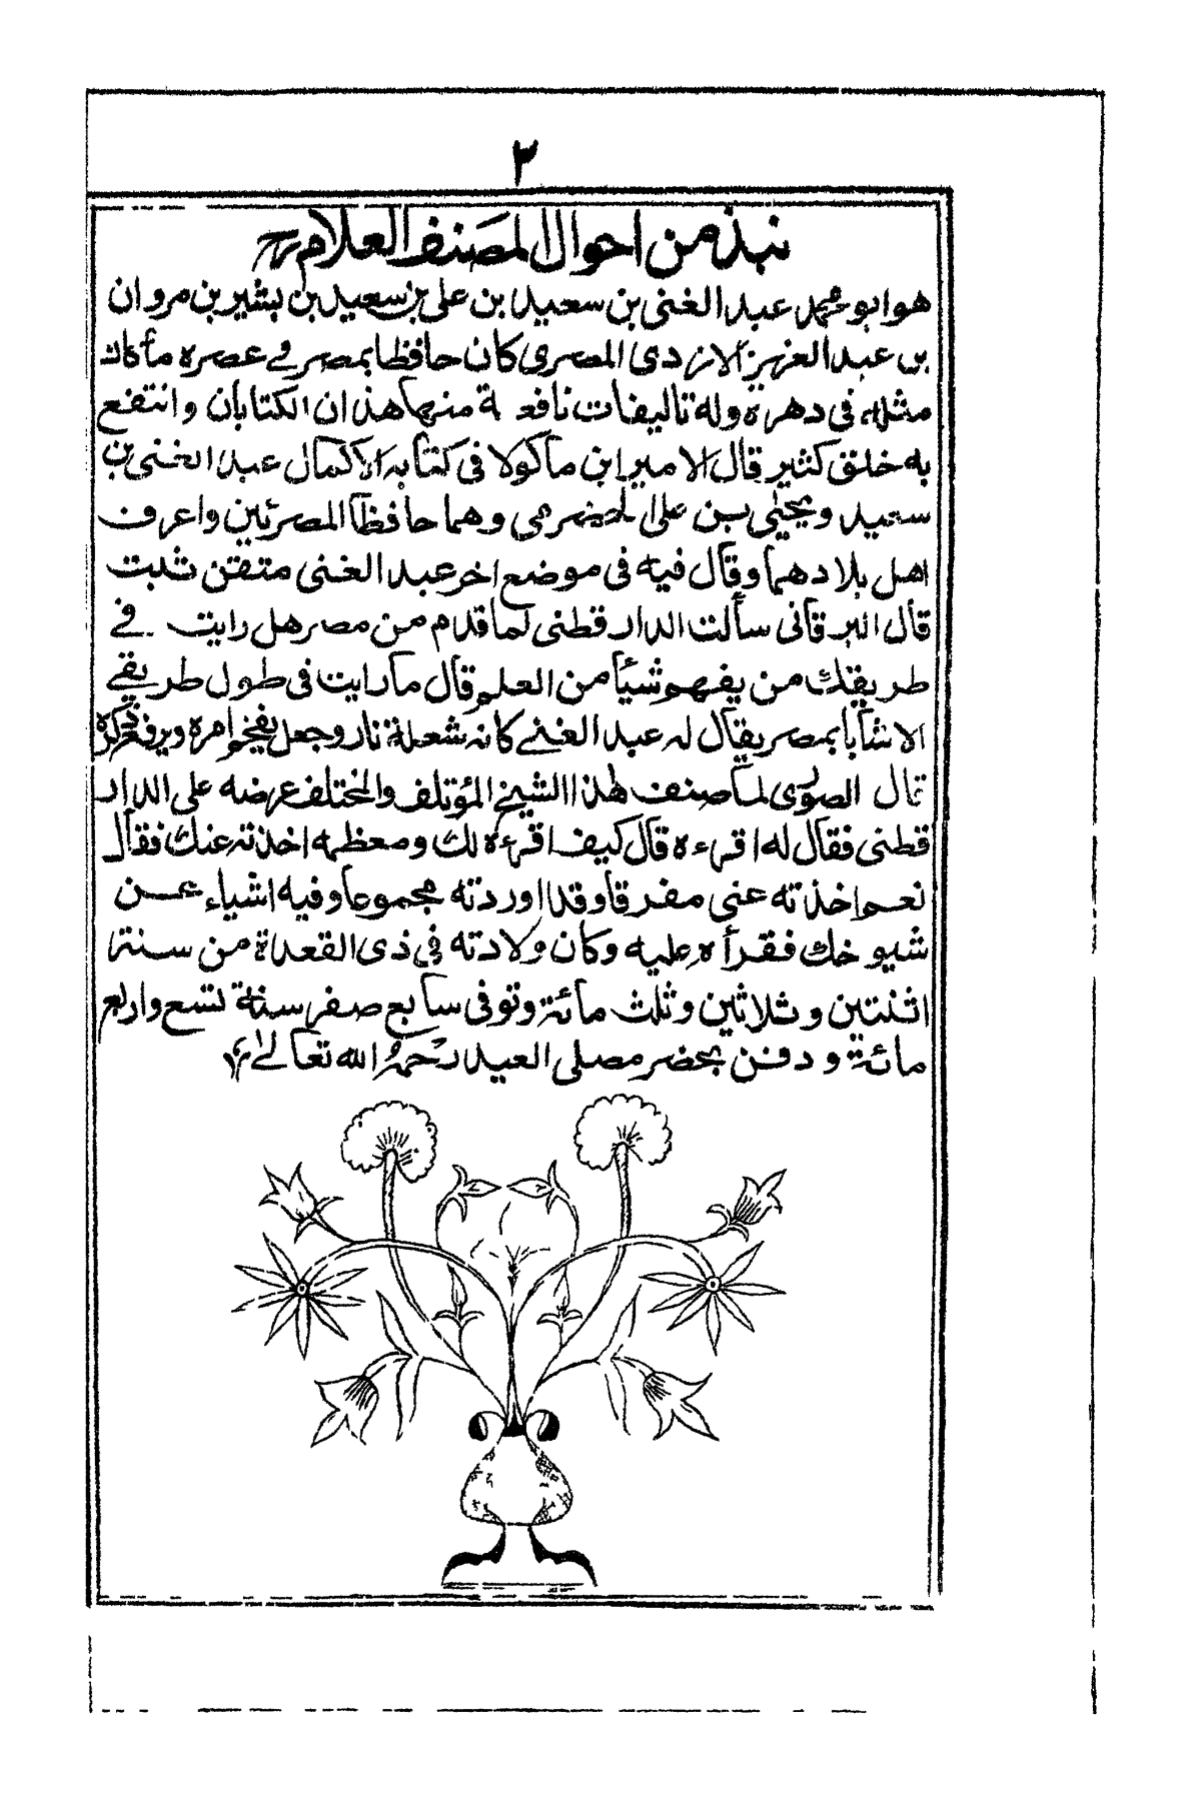 ٢
نبذ من احوال المصنف العلام رح
هو ابو محمد عبد الغني بن سعيد بن علي بن سعيد بن بشير بن مروان
بن عبد العزيز الازدي المصري كان حافظا بمصر في عصره ما كان
مثله في دهره وله تاليفات نافعة منها هذان الكتابان وانتفع
به خلق كثير قال الامير ابن ماكولا في كتابه الاكمال عبد الغني بن
سعيد ويحيى بن علي الحضرمي وهما حافظا المصريين واعرف
اهل بلادهما وقال فيه في موضع اخر عبد الغني متقن ثبت
قال البرقاني سألت الدار قطني لما قدم من مصر هل رايت في
طريقك من يفهم شيئا من العلم قال ما رايت في طول طريقي
الا شابا بمصر يقال له عبد الغني كانه شعلة نار وجعل يفخم امره ويرفع ذكره
قال الصوري لما صنف هذا الشيخ المؤتلف والمختلف عرضه على الدار
قطني فقال له اقرءه قال كيف اقرءه لك ومعظمه اخذته عنك فقال
نعم اخذته عني مفرقا وقد اوردته مجموعا وفيه اشياء عن
شيوخك فقرأه عليه وكان ولادته في ذي القعدة من سنة
اثنتين وثلاثين وثلث مائة وتوفي سابع صفر سنة تسع واربع
مائة ودفن بحضر مصلى العيد رحمه الله تعالى